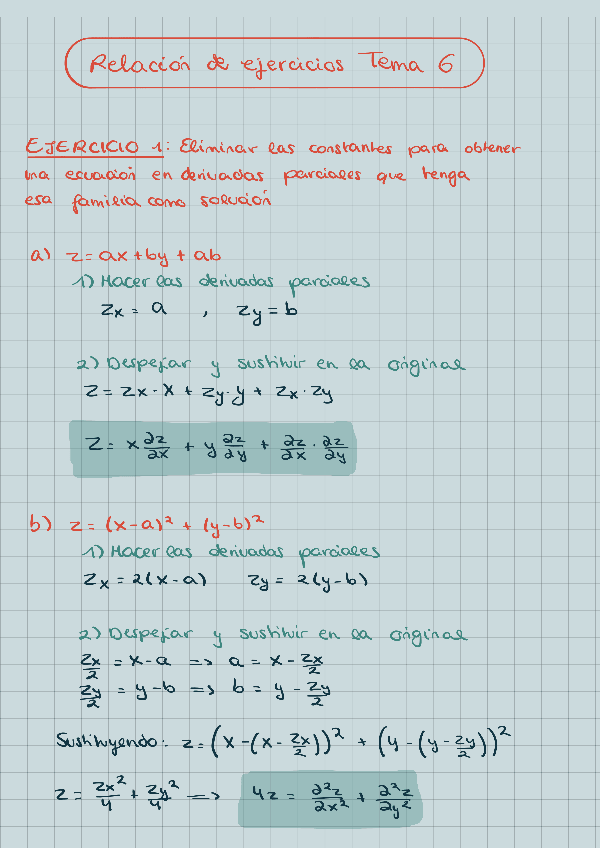 Relación de ejercicios Tema 6
EJERCICIO 1: Eliminar las constantes para obtener
una ecuación en derivadas parciales que tenga
esa familia como solución
a) z = ax + by + ab
1) Hacer las derivadas parciales
Zx = a , Zy = b
2) Despejar y sustituir en la original
Z = Zx · X + Zy · y + Zx · Zy
Z = x ∂z/∂x + y ∂z/∂y + ∂z/∂x · ∂z/∂y
b) z = (x-a)² + (y-b)²
1) Hacer las derivadas parciales
Zx = 2(x-a) Zy = 2(y-b)
2) Despejar y sustituir en la original
Zx/2 = x-a => a = x - Zx/2
Zy/2 = y-b => b = y - Zy/2
Sustituyendo: z = (x-(x-Zx/2))² + (y-(y-Zy/2))²
Z = Zx²/4 + Zy²/4 => 4z = ∂²z/∂x² + ∂²z/∂y²